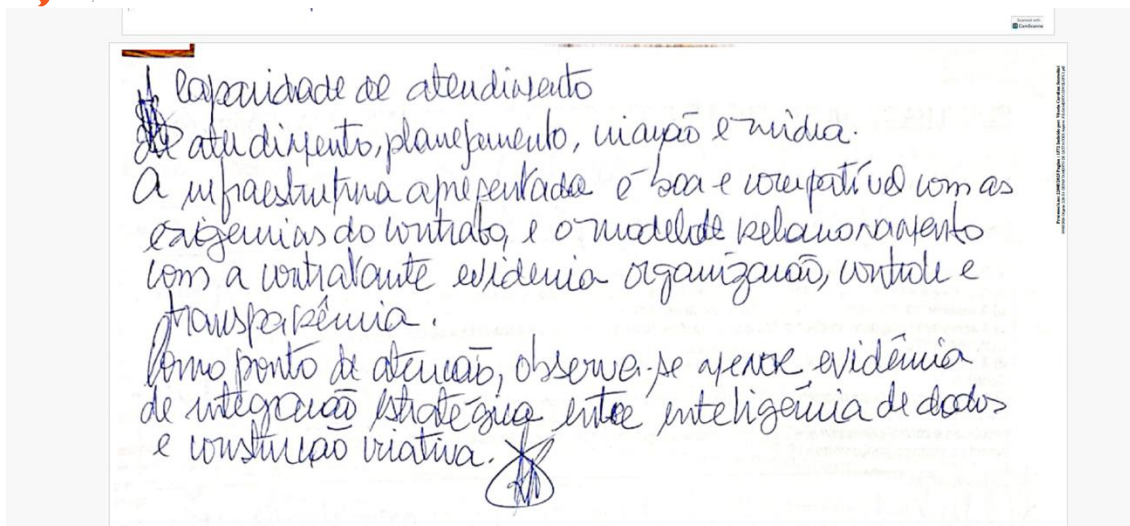 Scanned with
CamScanner
Capacidade de atendimento
de atendimento, planejamento, criação e mídia.
A infraestrutura apresentada é boa e compatível com as
exigências do contrato, e o modelo de relacionamento
com a contratante evidencia organização, controle e
transparência.
Como ponto de atenção, observa-se menor evidência
de integração estratégica entre inteligência de dados
e construção criativa.